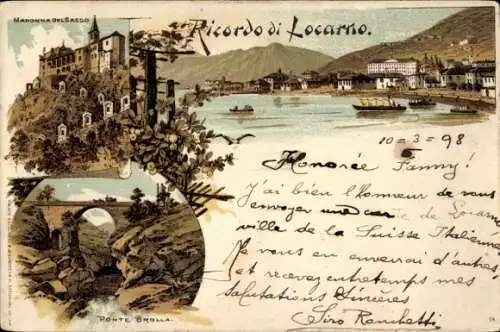 MADONNA DEL SASSO
Ricordo di Locarno.
10=3=98
Honorée Fanny!
J'ai bien l'honneur de vous
envoyer une carte de Locarno
ville de la Suisse Italienne
Je vous en enverrai d'autres
et recevez entretemps mes
salutations sincères
Siro
PONTE BROLLA.